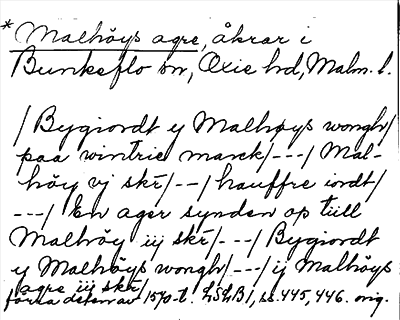 * Malhöys agre, åkrar i
Bunkeflo sn, Oxie hd, Malm. l.
/ Bygiordt y Malhøys wongh/
paa wintrie marck/---/ Mal-
höy vj skr/--/ hauffre iordt/
---/ En ager synden op tiill
Malhöy iij skr/---/ Bygiordt
y Malhöys wongh/---/ ij Malhöys
agre iij skr/
förra delen av 1570-t. LSLB1, ss. 445, 446. orig.